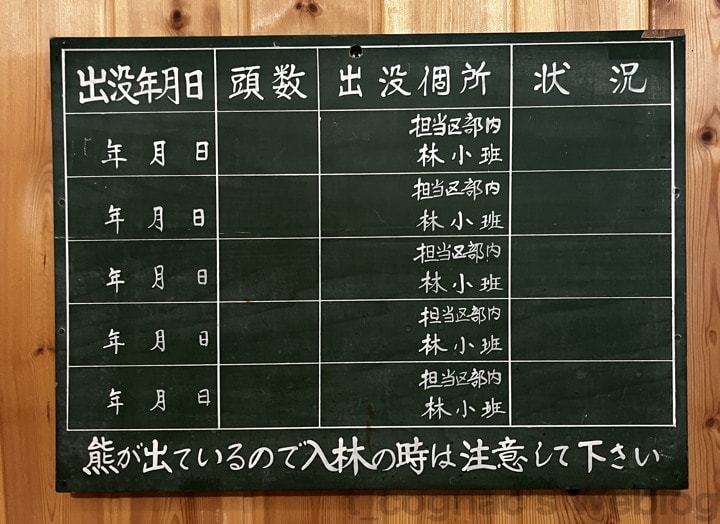 出没年月日 頭数 出没個所 状況
年 月 日 担当区部内
林小班
年 月 日 担当区部内
林小班
年 月 日 担当区部内
林小班
年 月 日 担当区部内
林小班
年 月 日 担当区部内
林小班
熊が出ているので入林の時は注意して下さい
t_cognac's weblog